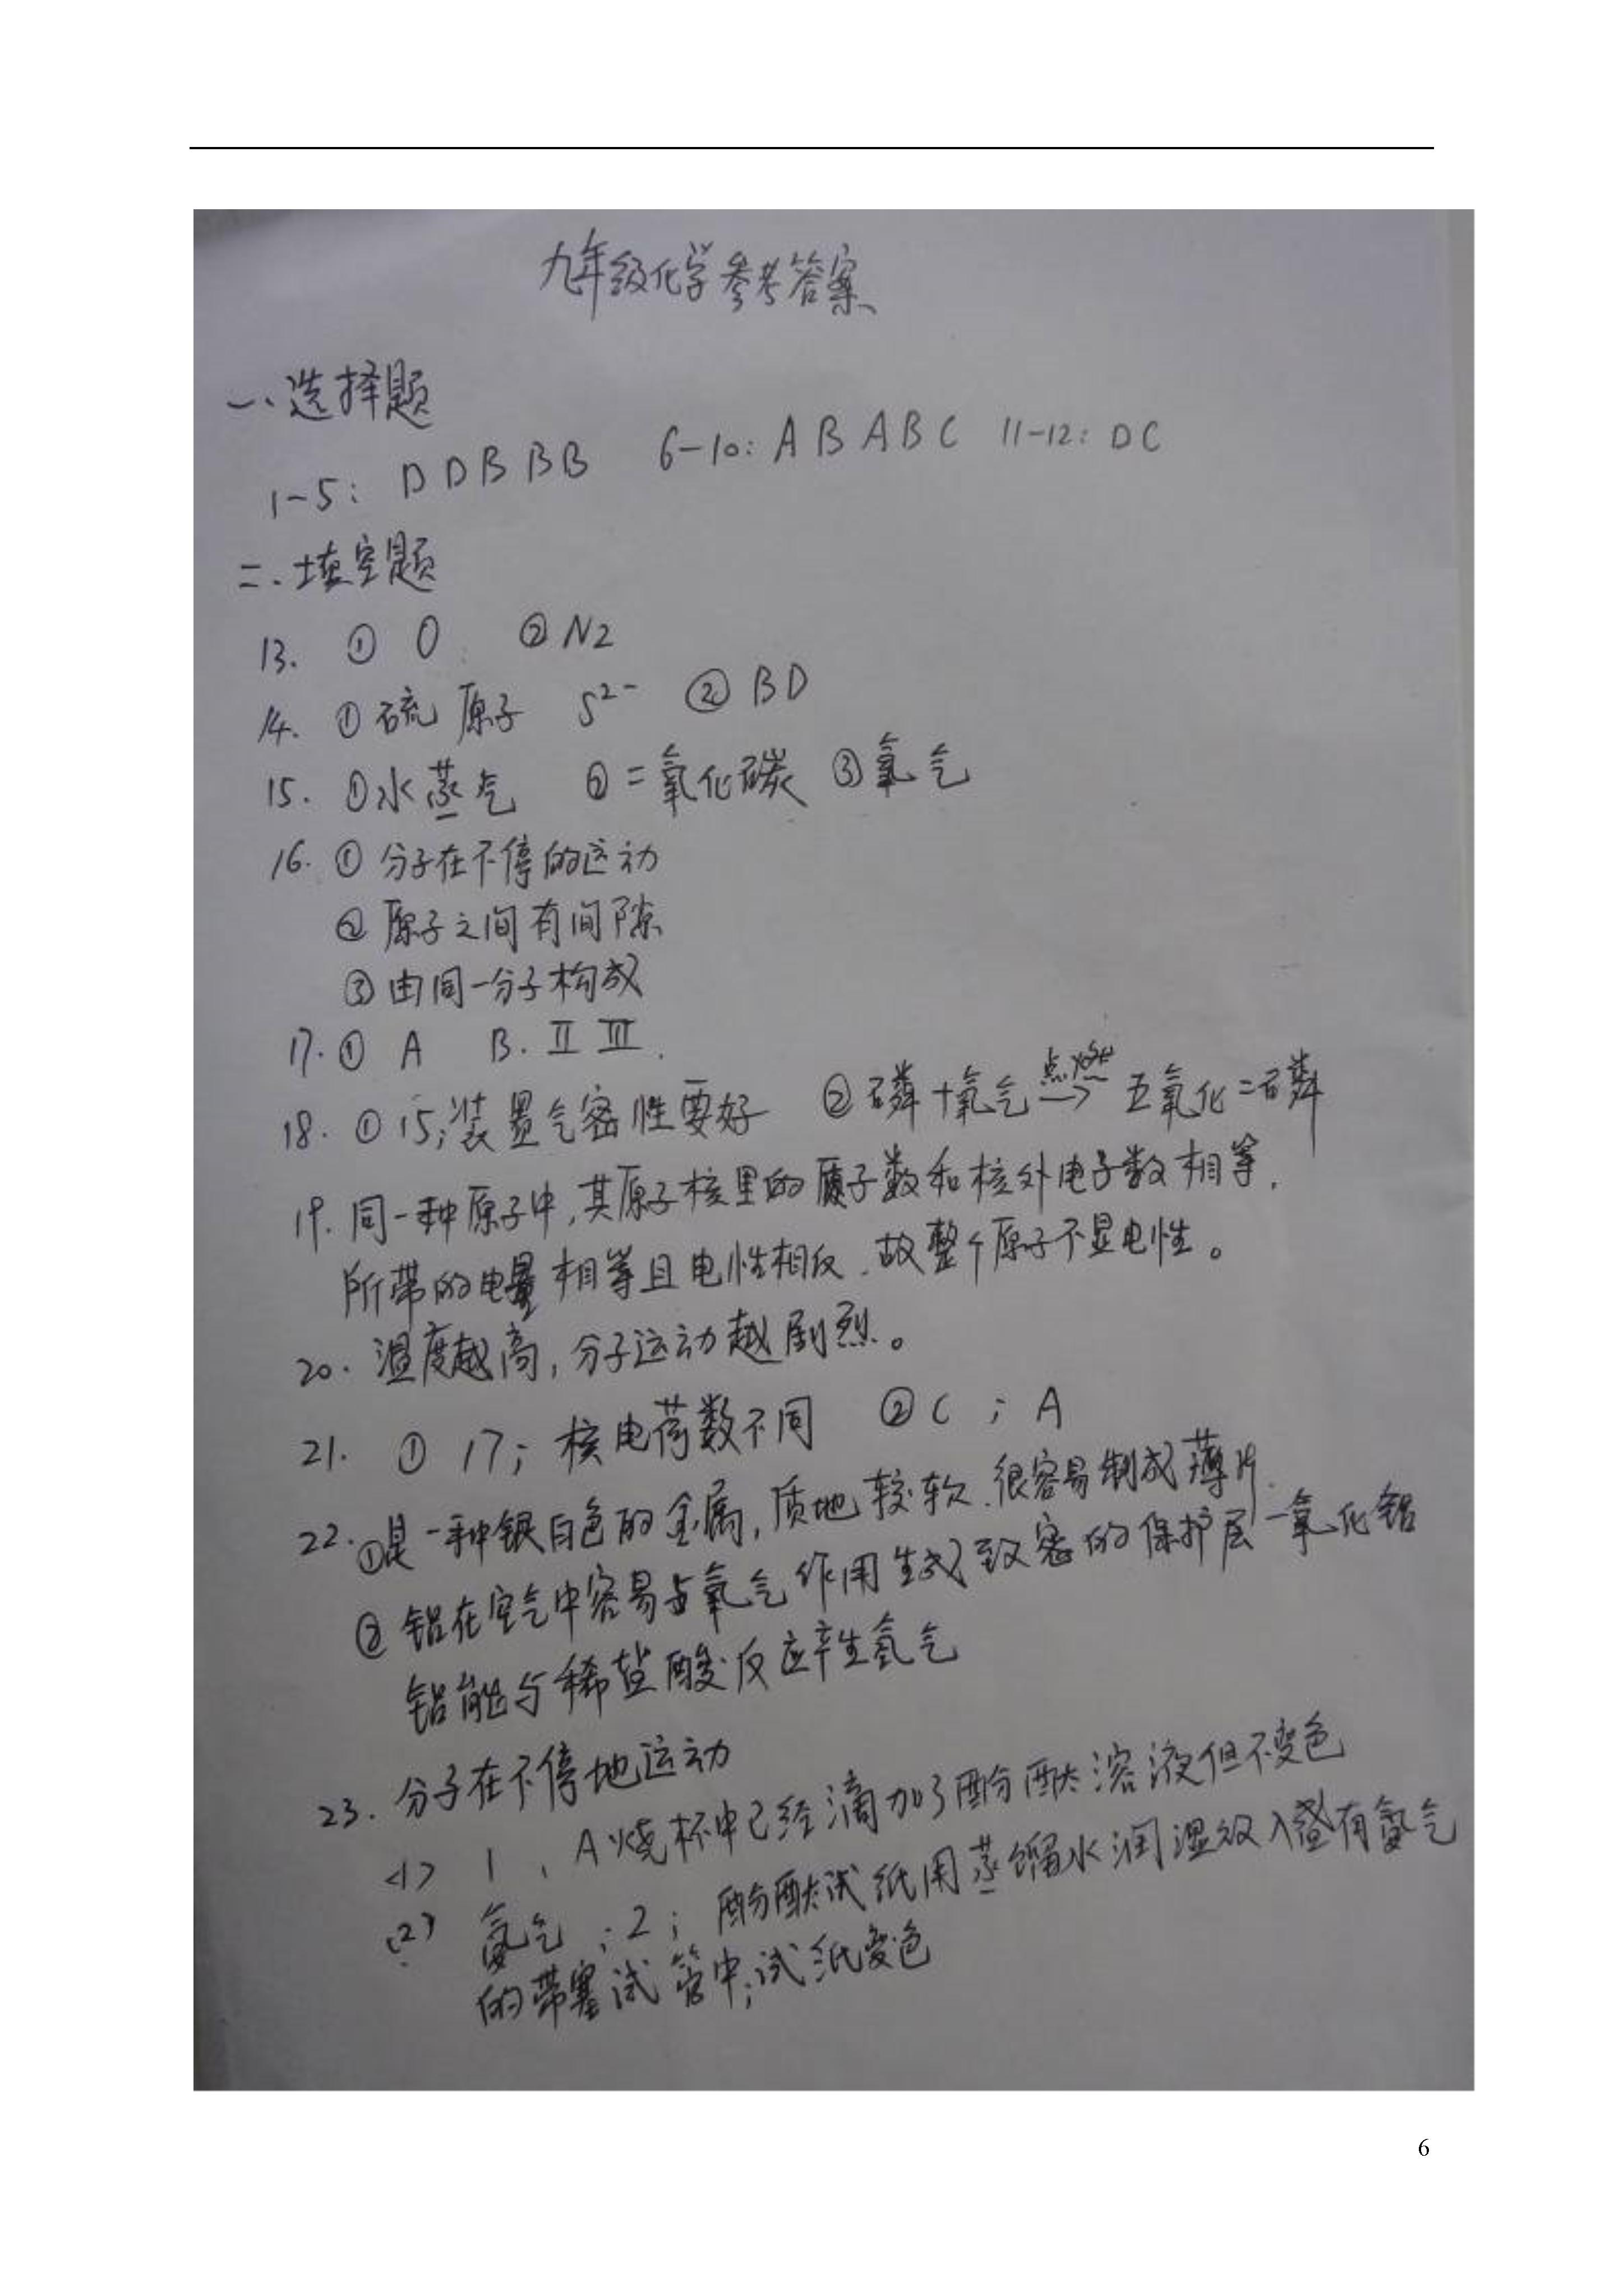 九年级化学参考答案
一、选择题
1-5: DDBBB 6-10: ABABC 11-12: DC
二、填空题
13. ① O ② N2
14. ① 硫原子 S²⁻ ② BD
15. ①水蒸气 ②二氧化碳 ③氧气
16. ① 分子在不停的运动
② 原子之间有间隙
③ 由同一分子构成
17. ① A B. Ⅱ Ⅲ.
18. ① 15; 装置气密性要好 ② 磷+氧气 点燃→ 五氧化二磷
19. 同一种原子中,其原子核里的质子数和核外电子数相等,
所带的电量相等且电性相反,故整个原子不显电性。
20. 温度越高,分子运动越剧烈。
21. ① 17; 核电荷数不同 ② C ; A
22. ①是一种银白色的金属,质地较软,很容易制成薄片.
② 铝在空气中容易与氧气作用生成致密的保护层—氧化铝
铝能与稀盐酸反应产生氢气
23. 分子在不停地运动
<1> 1 、A烧杯中已经滴加了酚酞溶液但不变色
(2) 氨气 ; 2 ; 酚酞试纸用蒸馏水润湿放入盛有氨气
的带塞试管中;试纸变色
6